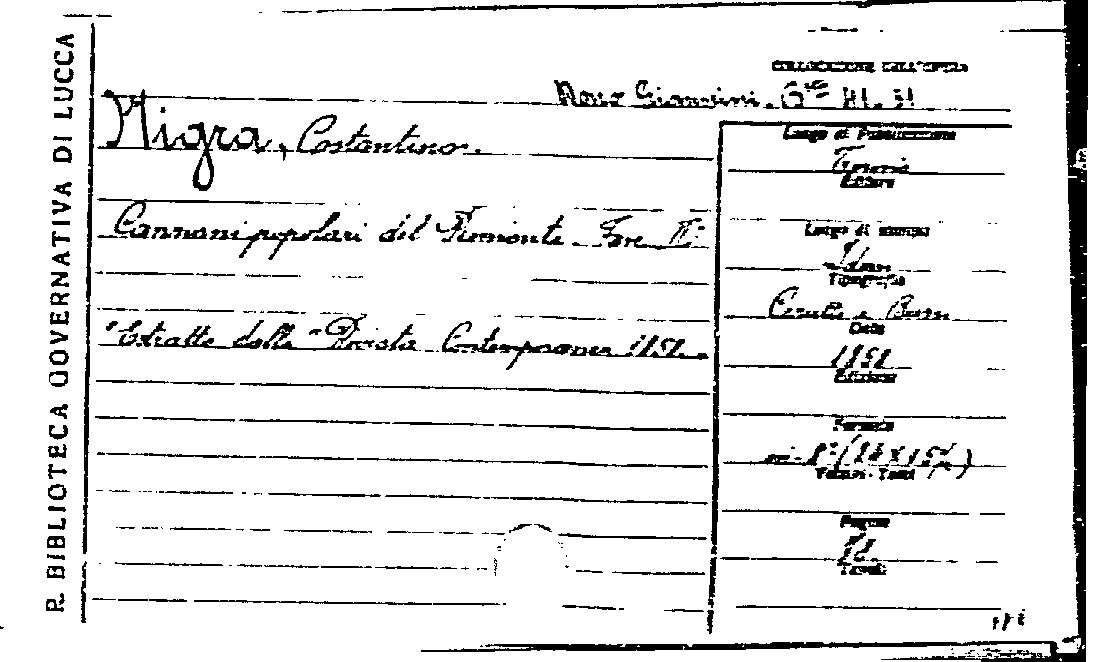 R. BIBLIOTECA GOVERNATIVA DI LUCCA
COLLOCAZIONE DELL'OPERA
Giannini.
Nigra, Costantino.
Canzoni popolari del Piemonte. Fasc. II°
Estratto dalla "Rivista Contemporanea 1858.
Luogo di Pubblicazione
Torino
Editore
Luogo di stampa
Tipografia
Cerutti e
Data
1858
Edizione
Formato
Volumi - Tomi
Pagine
Tavole